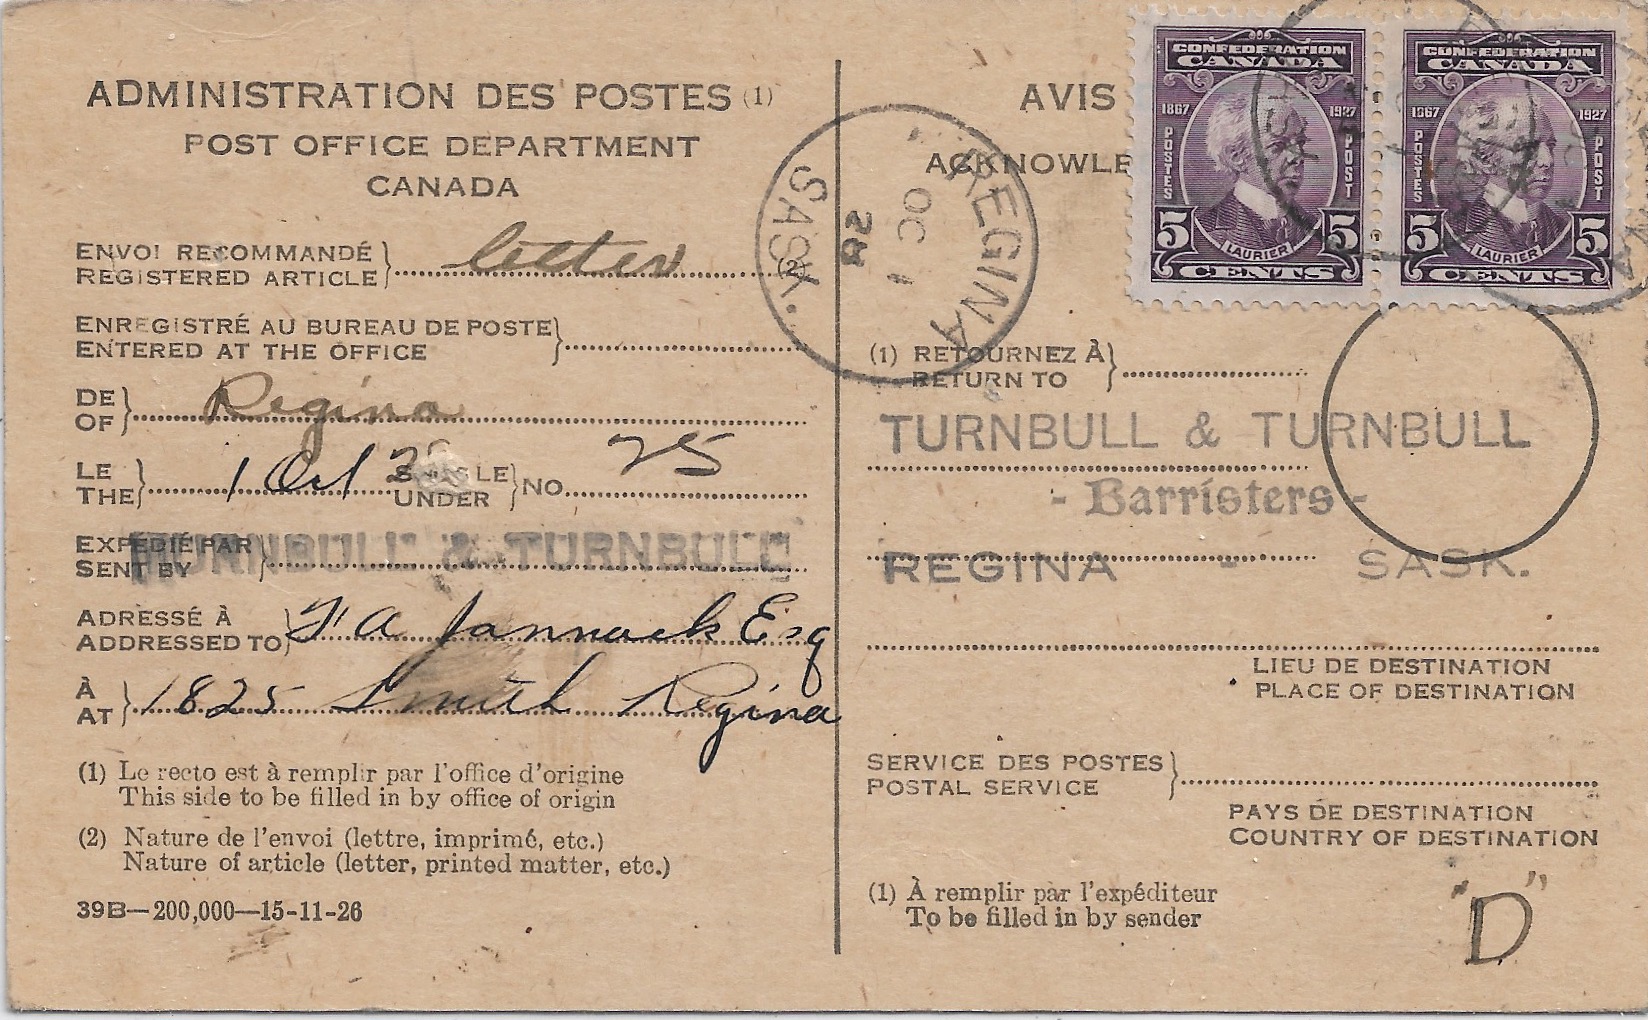 ADMINISTRATION DES POSTES (1)
POST OFFICE DEPARTMENT
CANADA
ENVOI RECOMMANDÉ
REGISTERED ARTICLE
letter
(2)
ENREGISTRÉ AU BUREAU DE POSTE
ENTERED AT THE OFFICE
DE
OF
Regina
LE
THE
1 Oct 28
SOUS LE
UNDER
NO.
25
EXPÉDIÉ PAR
SENT BY
TURNBULL & TURNBULL
ADRESSÉ À
ADDRESSED TO
F A Jannack Esq
À
AT
1825 Smith Regina
(1) Le recto est à remplir par l'office d'origine
This side to be filled in by office of origin
(2) Nature de l'envoi (lettre, imprimé, etc.)
Nature of article (letter, printed matter, etc.)
39B—200,000—15-11-26
REGINA
SASK.
OC 1
28
AVIS
ACKNOWLE
CONFEDERATION
CANADA
1867 1927
POSTES POST
5 5
LAURIER
CENTS
CONFEDERATION
CANADA
1867 1927
POSTES POST
5 5
LAURIER
CENTS
(1) RETOURNEZ À
RETURN TO
TURNBULL & TURNBULL
- Barristers -
REGINA - SASK.
LIEU DE DESTINATION
PLACE OF DESTINATION
SERVICE DES POSTES
POSTAL SERVICE
PAYS DE DESTINATION
COUNTRY OF DESTINATION
(1) À remplir par l'expéditeur
To be filled in by sender
"D"